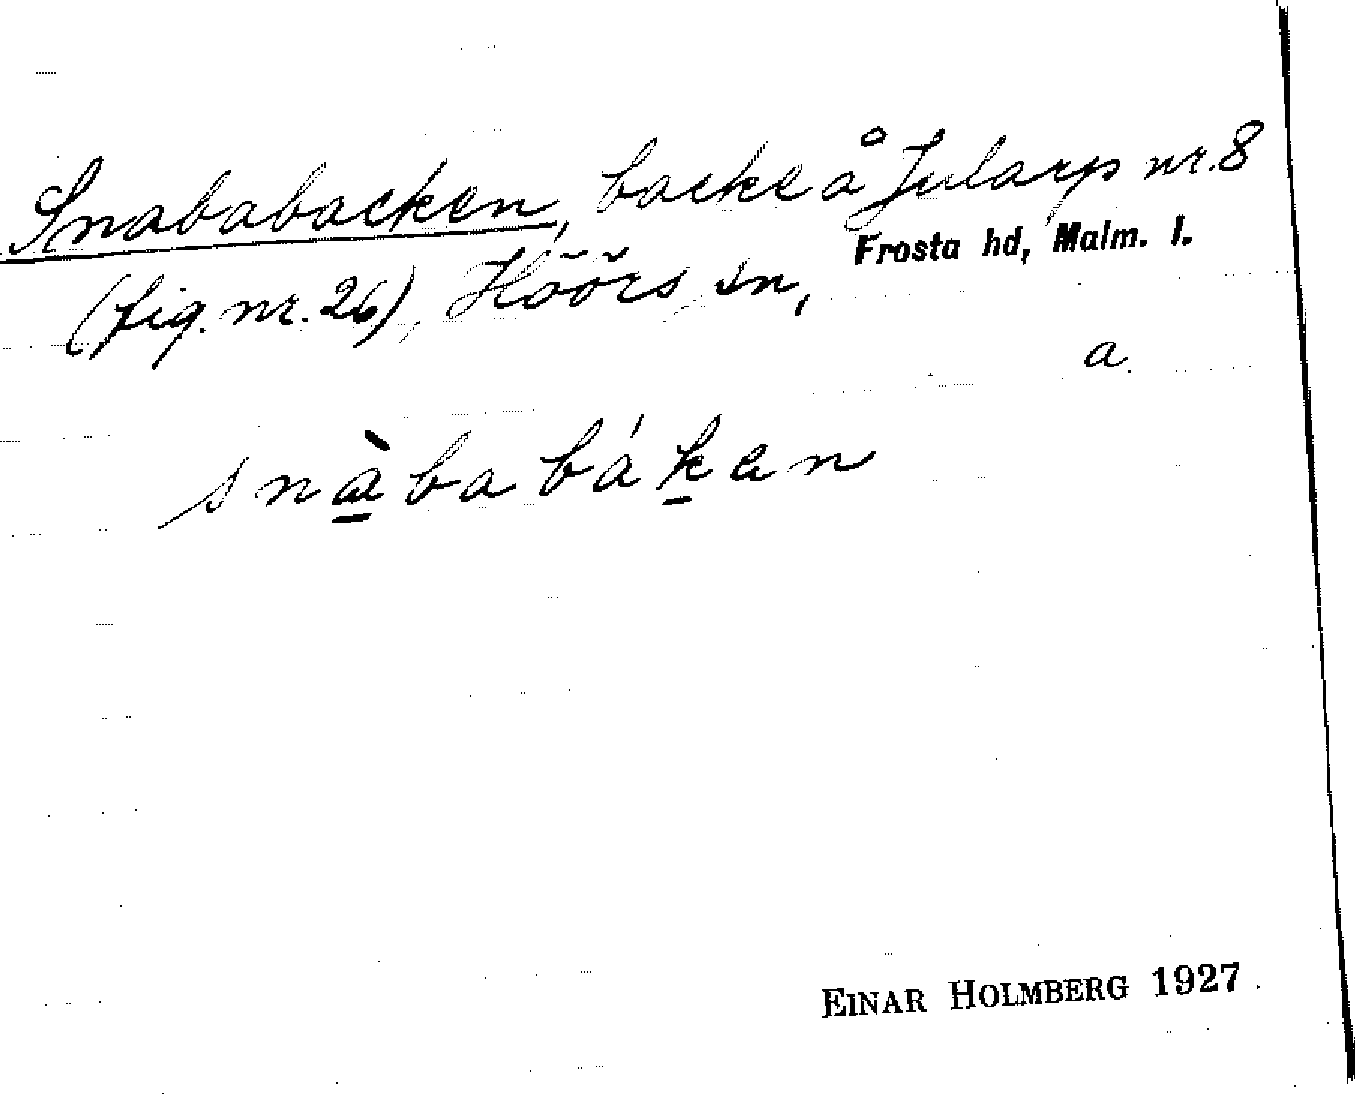 Snababacken, backe å Jularp nr. 8
Frosta hd, Malm. l.
(fig. nr. 26), Höörs sn,
a.
snàbabáken
EINAR HOLMBERG 1927